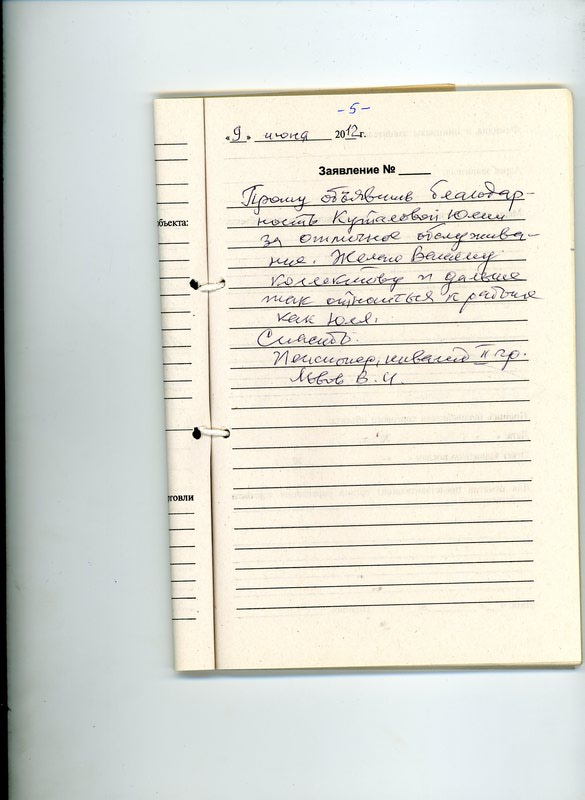 -5-
«9» июня 2012г.
Заявление №
Прошу объявить благодар-
ность Юлии
за отличное обслужива-
ние. Желаю Вашему
коллективу и дальше
так относиться к работе
как Юля.
Спасибо.
Пенсионер, инвалид II гр.
Львов В.И.
объекта:
торговли